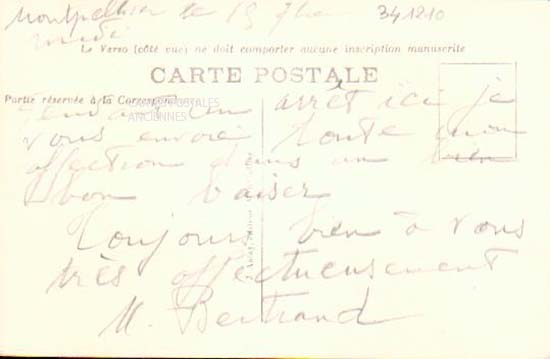 Montpellier le 15 7bre 341210
midi
Le Verso (côté vue) ne doit comporter aucune inscription manuscrite
CARTE POSTALE
Partie réservée à la Correspon
CARTES POSTALES
ANCIENNES
Pendant un arrêt ici je
vous envoie toute mon
affection dans un bien
bon baiser
Toujours bien à vous
très affectueusement
M. Bertrand